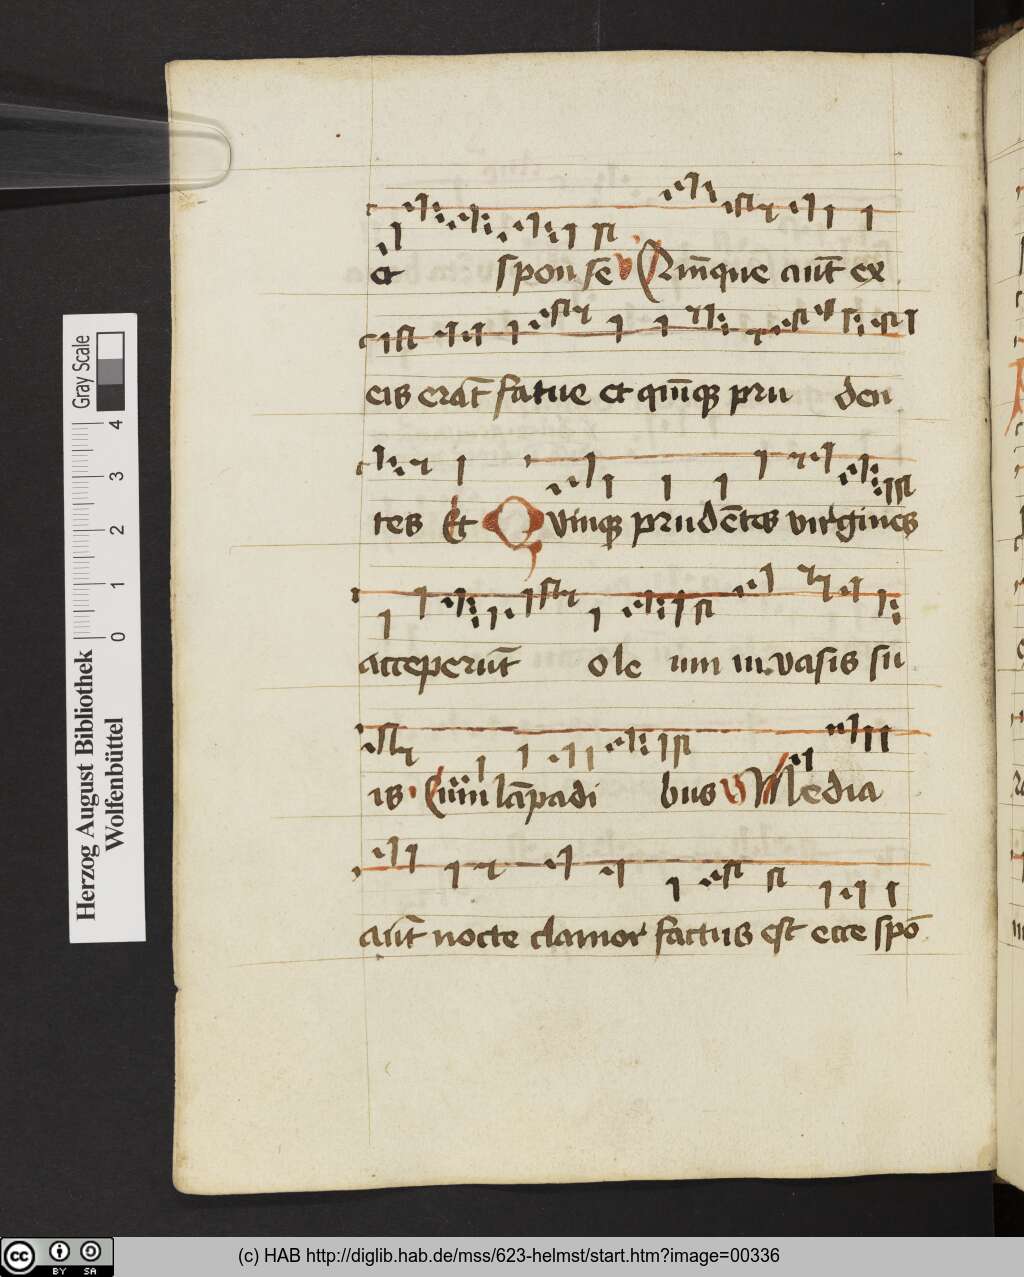 et spon se V Quinq̄ue aūt ex
eis erāt fatue et quīqꝫ pru den
tes Et Quinqꝫ prudētes virgines
acceperūt ole um in vasis su
is Cum lāpadi bus V Media
aūt nocte clamor factus est ecce spō
Gray Scale
4
3
2
1
0
Herzog August Bibliothek
Wolfenbüttel
cc BY SA
(c) HAB http://diglib.hab.de/mss/623-helmst/start.htm?image=00336